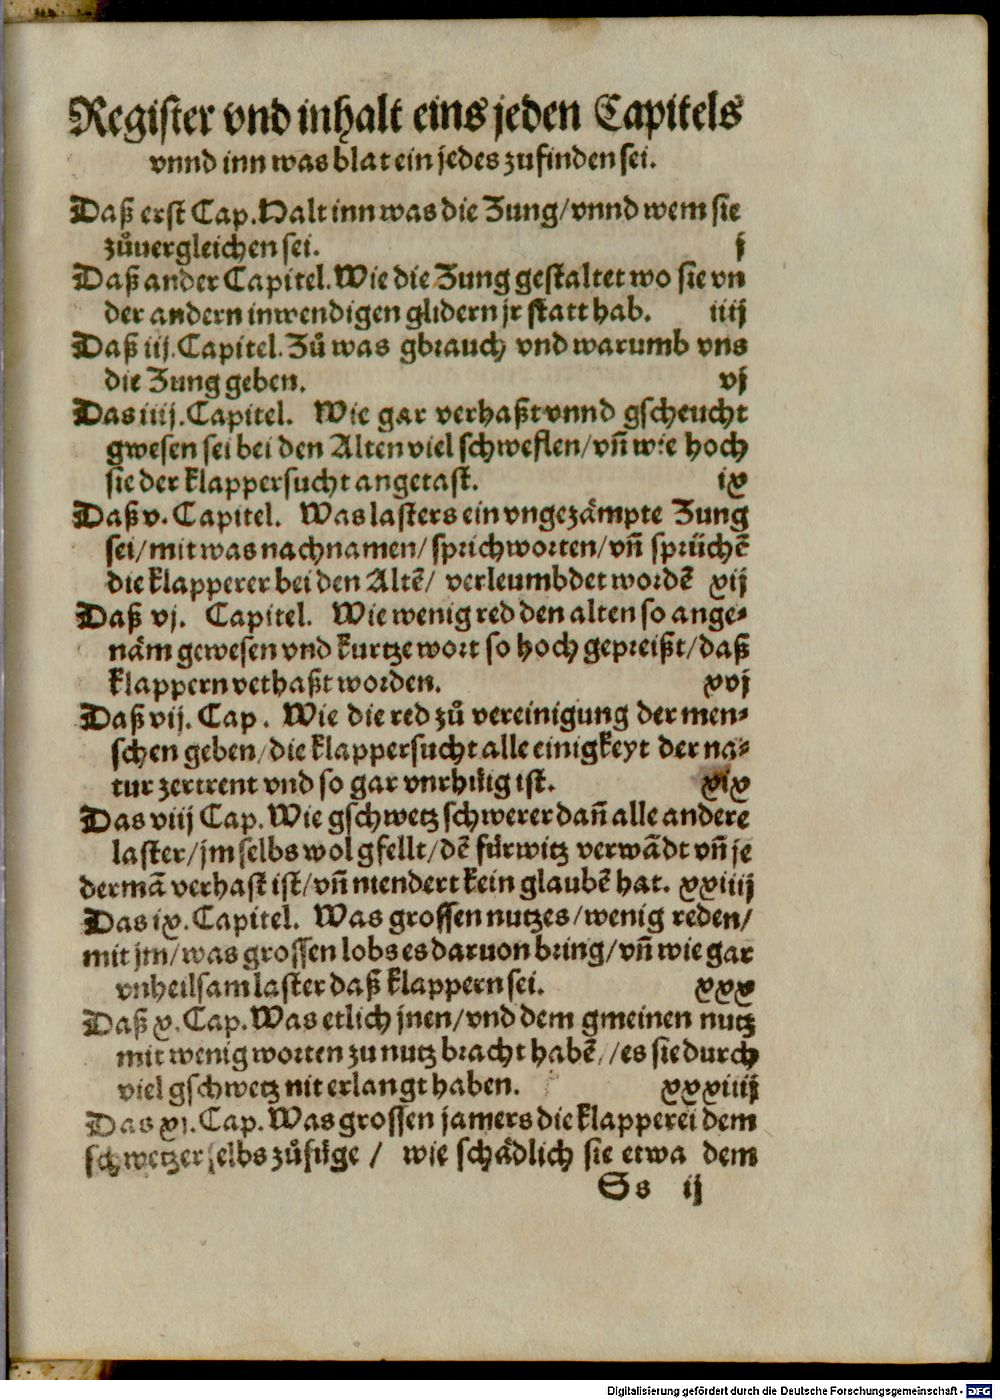 Register vnd inhalt eins jeden Capitels
vnnd inn was blat ein jedes zufinden sei.
Daß erst Cap. Halt inn was die Zung/vnnd wem sie
zůuergleichen sei. j
Daß ander Capitel. Wie die Zung gestaltet wo sie vn
der andern inwendigen glidern jr statt hab. iiij
Daß iij. Capitel. Zů was gbrauch vnd warumb vns
die Zung geben. vj
Das iiij. Capitel. Wie gar verhaßt vnnd gscheucht
gwesen sei bei den Alten viel schweflen/vñ wie hoch
sie der klappersucht angetast. ix
Daß v. Capitel. Was lasters ein vngezämpte Zung
sei/mit was nachnamen/sprichworten/vñ sprüchẽ
die klapperer bei den Altẽ/ verleumbdet wordẽ xij
Daß vj. Capitel. Wie wenig red den alten so ange-
näm gewesen vnd kurtze wort so hoch gepreißt/daß
klappern vethaßt worden. xvj
Daß vij. Cap. Wie die red zů vereinigung der men-
schen geben/die klappersucht alle einigkeyt der na-
tur zertrent vnd so gar vnrhüig ist. xix
Das viij Cap. Wie gschwetz schwerer dañ alle andere
laster/jm selbs wol gfellt/dẽ fürwitz verwãdt vñ je
dermã verhast ist/vñ niendert kein glaubẽ hat. xxiiij
Das ix. Capitel. Was grossen nutzes/wenig reden/
mit jm/was grossen lobs es daruon bring/vñ wie gar
vnheilsam laster daß klappern sei. xxx
Daß x. Cap. Was etlich jnen/vnd dem gmeinen nutz
mit wenig worten zu nutz bracht habẽ,/es sie durch
viel gschwetz nit erlangt haben. xxxiiij
Das xj. Cap. Was grossen jamers die klapperei dem
schwetzer selbs zůfüge / wie schädlich sie etwa dem
Ss ij
Digitalisierung gefördert durch die Deutsche Forschungsgemeinschaft - DFG